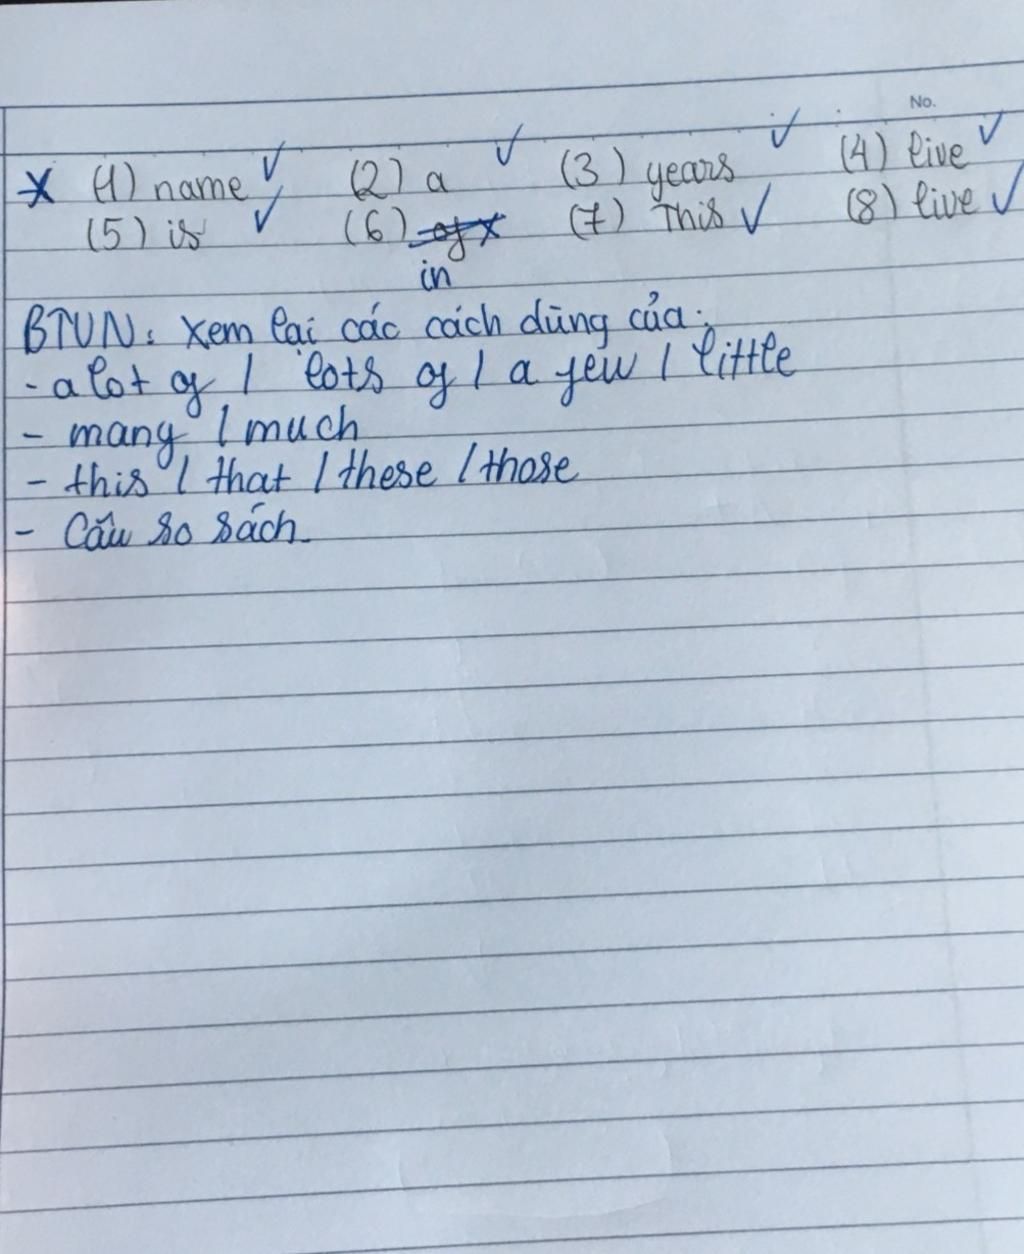 No.
* (1) name ✓ (2) a ✓ (3) years ✓ (4) live ✓
(5) is ✓ (6) of x (7) This ✓ (8) live ✓
in
BTVN: Xem lại các cách dùng của:
- a lot of / lots of / a few / little
- many / much
- this / that / these / those
- Câu so sách.